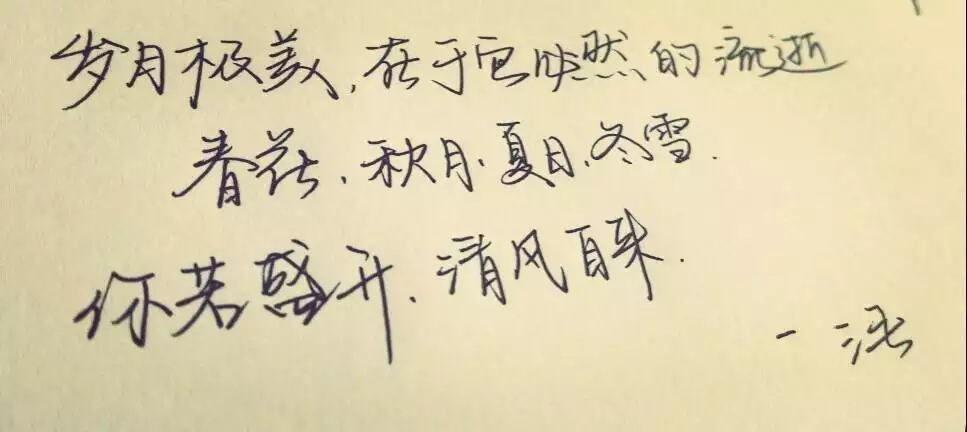 岁月极美,在于它必然的流逝
春花、秋月、夏日、冬雪.
你若盛开、清风自来.